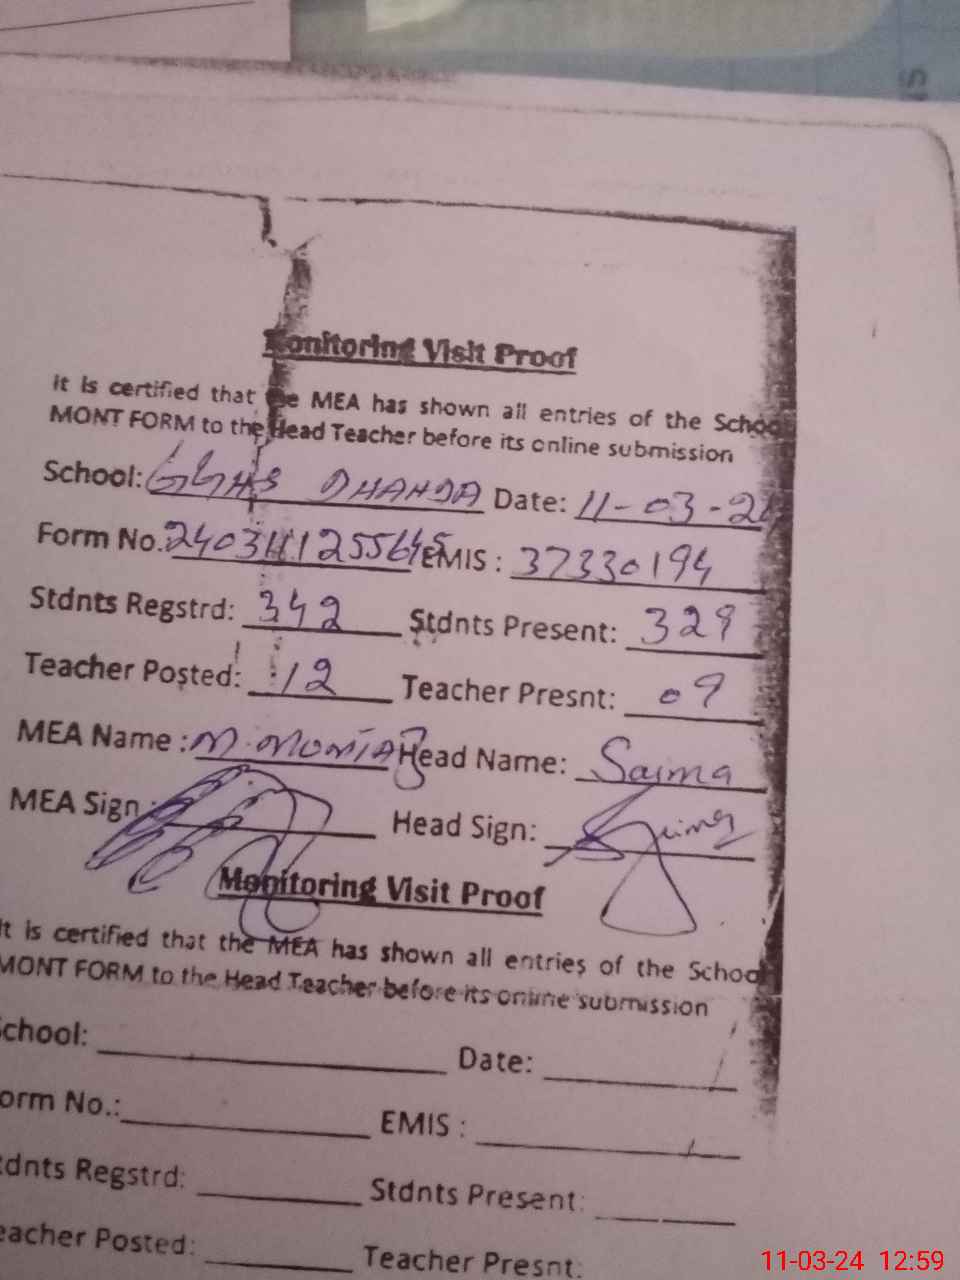 Monitoring Visit Proof
It is certified that the MEA has shown all entries of the School
MONT FORM to the Head Teacher before its online submission
School: GGHS DHANDA Date: 11-03-24
Form No. EMIS : 37330194
Stdnts Regstrd: 342 Stdnts Present: 329
Teacher Posted: 12 Teacher Presnt: 09
MEA Name : M. MOMTAZ Head Name: Saima
MEA Sign : Head Sign: Saima
Monitoring Visit Proof
It is certified that the MEA has shown all entries of the School
MONT FORM to the Head Teacher before its online submission
School: Date:
orm No.: EMIS :
tdnts Regstrd: Stdnts Present:
eacher Posted: Teacher Presnt:
11-03-24 12:59